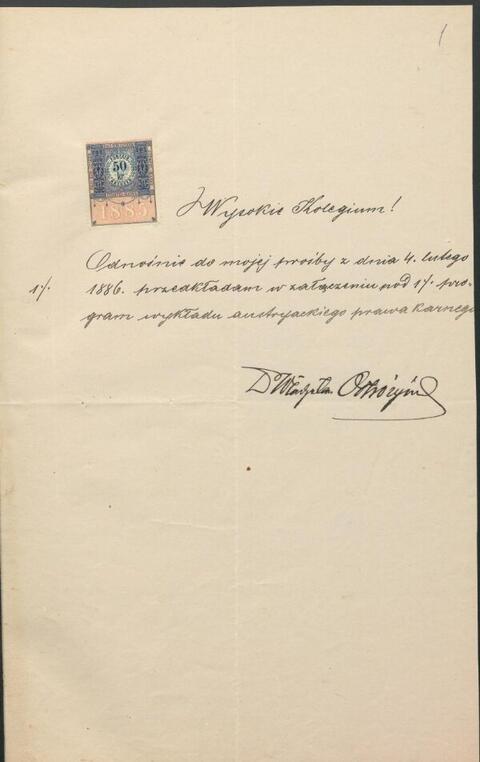 1
50
kr
1885
Wysokie Kolegium!
Odnośnie do mojej prośby z dnia 4. lutego
1/. 1886. przedkładam w załączeniu pod 1/. pro-
gram wykładu austryjackiego prawa karnego
Dr Władysław Ostrożyński